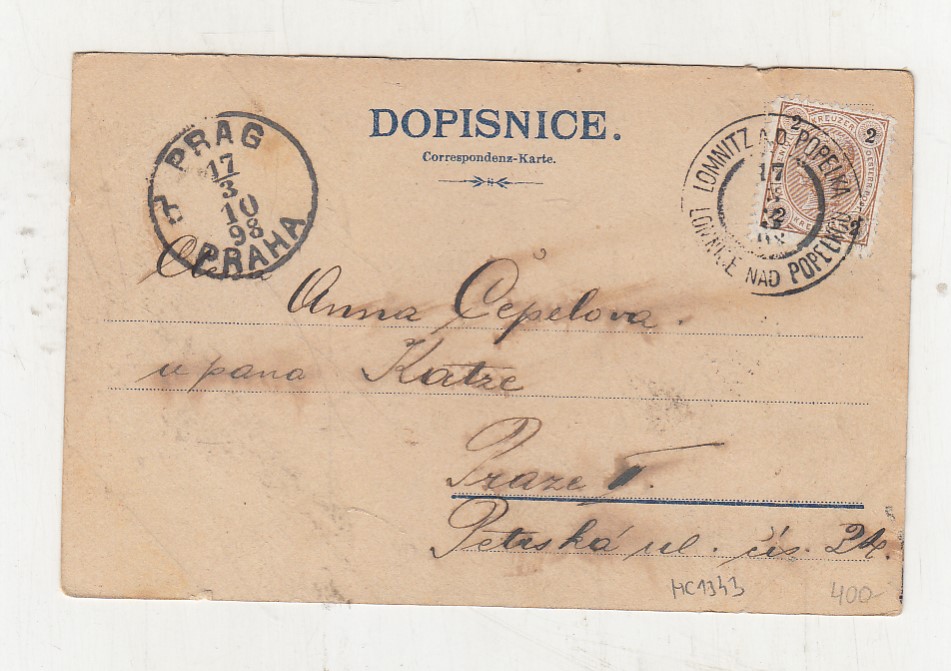 DOPISNICE.
Correspondenz-Karte.
PRAG
17
3
10
98
PRAHA
LOMNITZ A.D. POPELKA
17
3
98
LOMNICE NAD POPELKOU
2 KREUZER 2
2
Ctěná
Anna Čepelova.
u pana Katze
Praze II.
Petrská ul. čís. 24.
MC1343
400-